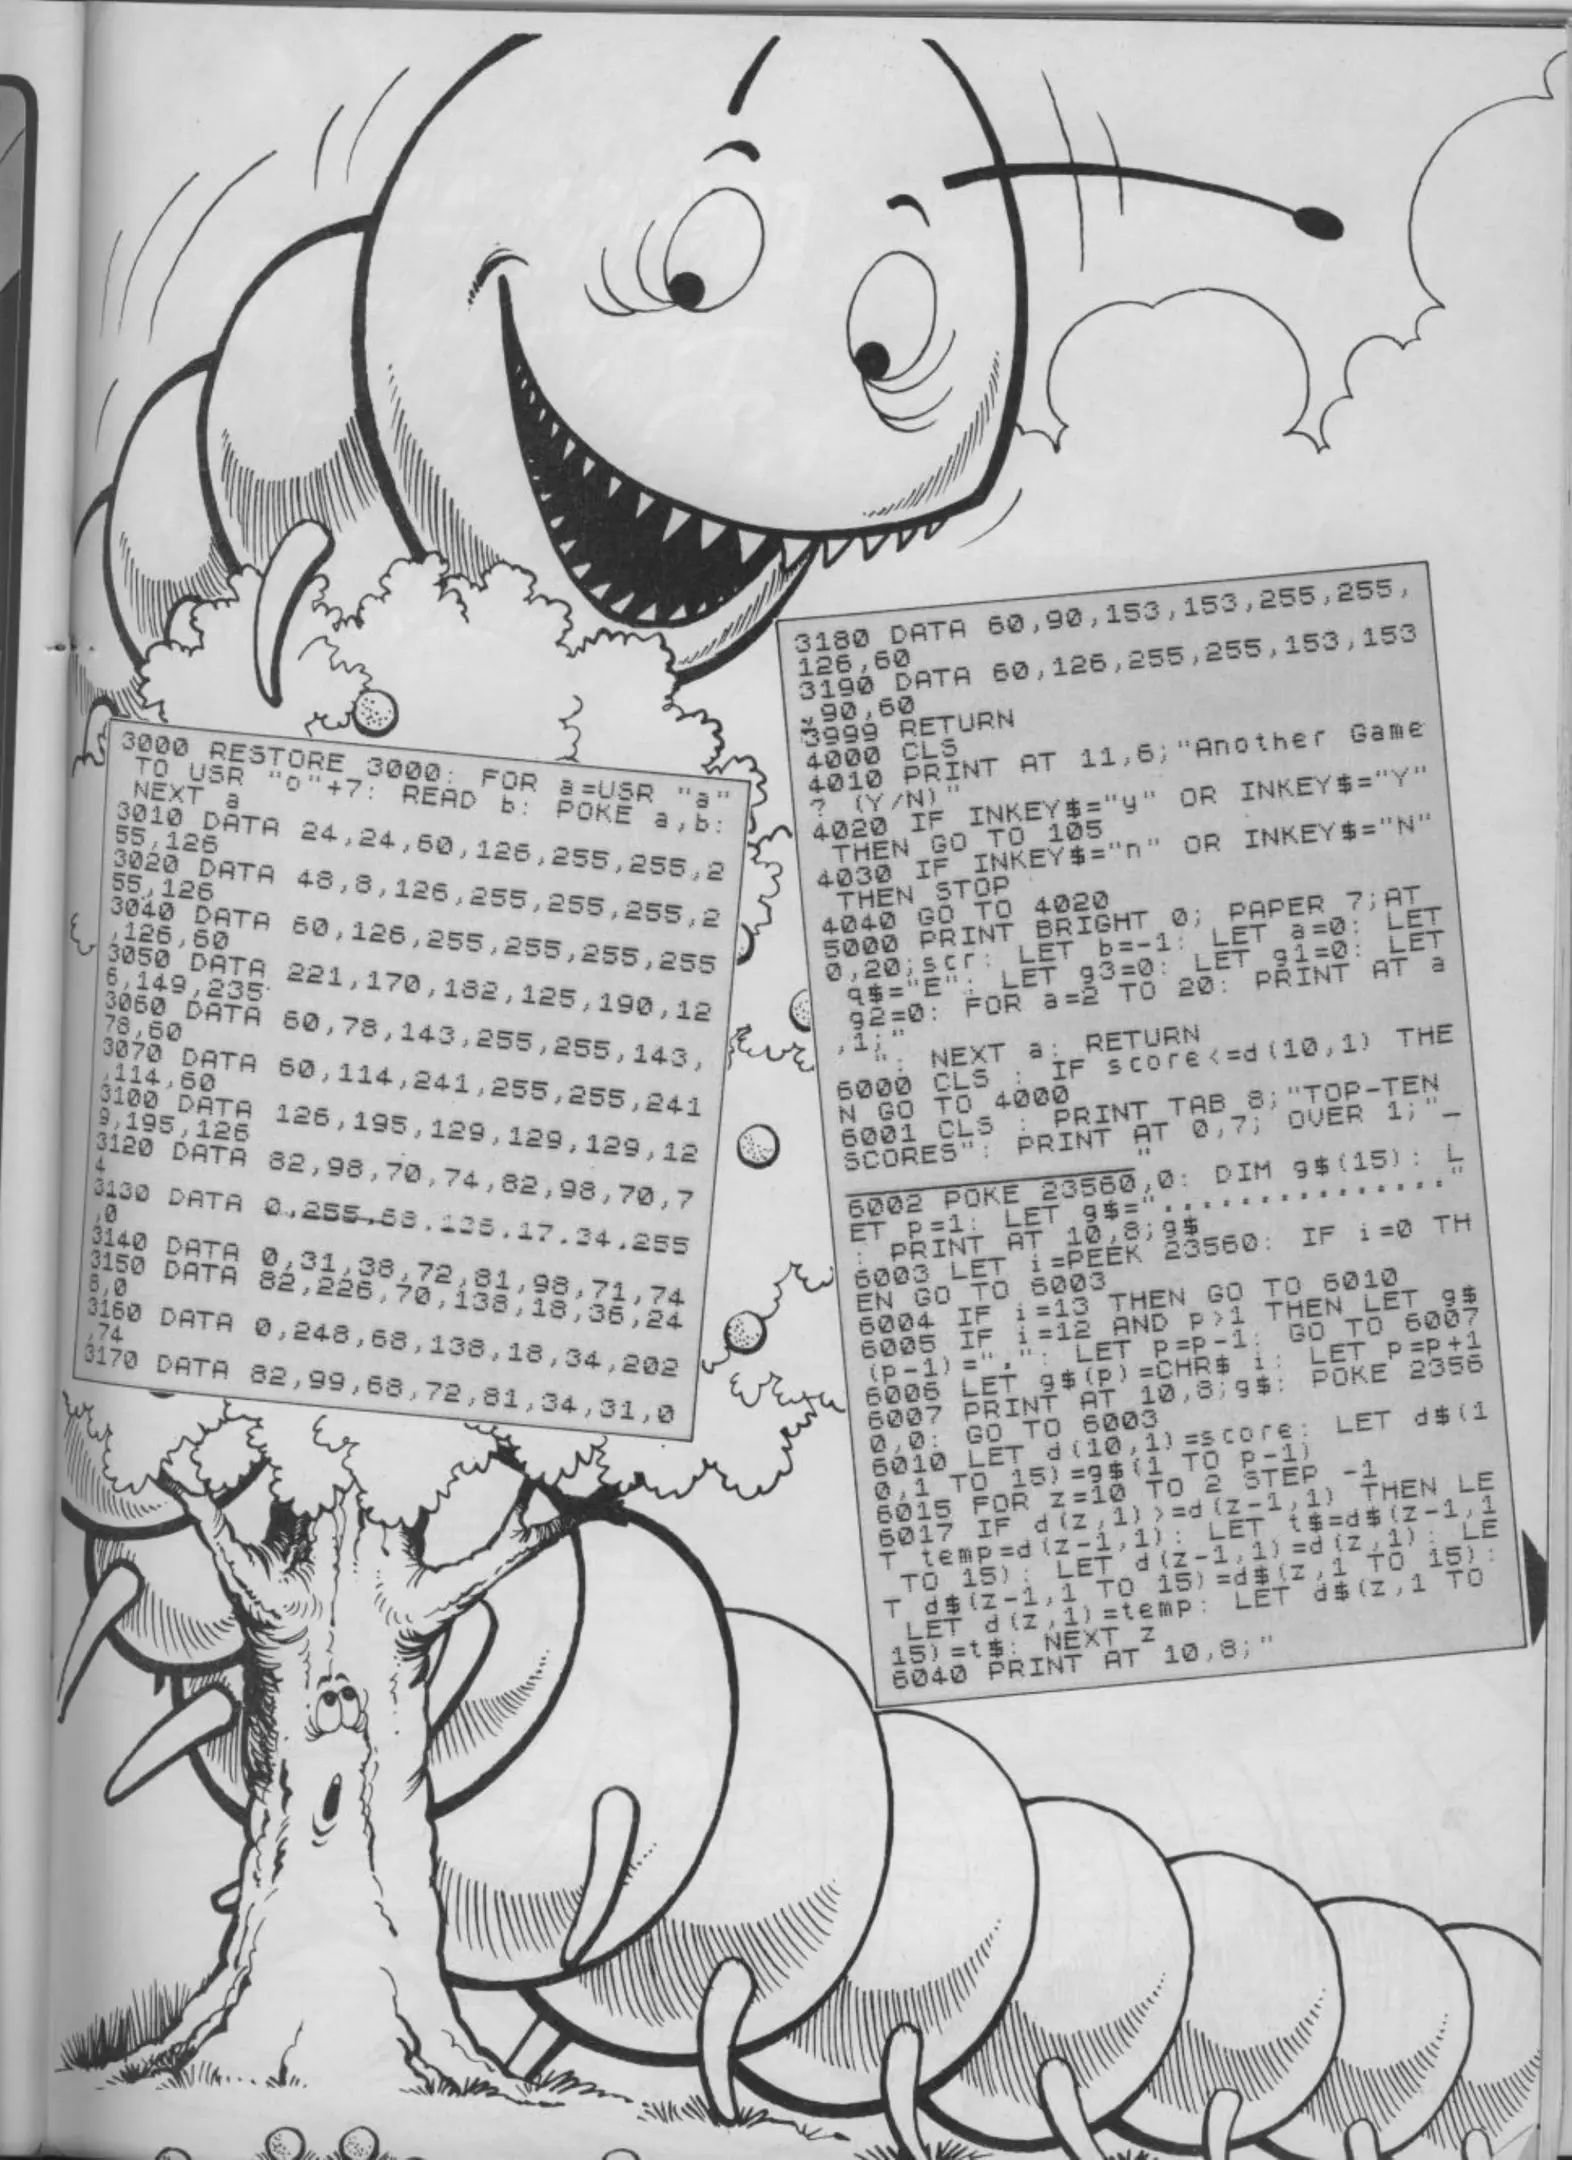 3000 RESTORE 3000: FOR a=USR "a"
TO USR "o"+7: READ b: POKE a,b:
NEXT a
3010 DATA 24,24,60,126,255,255,2
55,126
3020 DATA 48,8,126,255,255,255,2
55,126
3040 DATA 60,126,255,255,255,255
,126,60
3050 DATA 221,170,182,125,190,12
6,149,235
3060 DATA 60,78,143,255,255,143,
78,60
3070 DATA 60,114,241,255,255,241
,114,60
3100 DATA 126,195,129,129,129,12
9,195,126
3120 DATA 82,98,70,74,82,98,70,7
4
3130 DATA 0,255,68,136,17,34,255
,0
3140 DATA 0,31,38,72,81,98,71,74
3150 DATA 82,226,70,138,18,36,24
8,0
3160 DATA 0,248,68,138,18,34,202
,74
3170 DATA 82,99,68,72,81,34,31,0
3180 DATA 60,90,153,153,255,255,
126,60
3190 DATA 60,126,255,255,153,153
,90,60
3999 RETURN
4000 CLS
4010 PRINT AT 11,6;"Another Game
? (Y/N)"
4020 IF INKEY$="y" OR INKEY$="Y"
THEN GO TO 105
4030 IF INKEY$="n" OR INKEY$="N"
THEN STOP
4040 GO TO 4020
5000 PRINT BRIGHT 0; PAPER 7;AT
0,20;scr: LET b=-1: LET a=0: LET
q$="E": LET g3=0: LET g1=0: LET
g2=0: FOR a=2 TO 20: PRINT AT a
,1;"
": NEXT a: RETURN
6000 CLS : IF score<=d(10,1) THE
N GO TO 4000
6001 CLS : PRINT TAB 8;"TOP-TEN
SCORES": PRINT AT 0,7; OVER 1;"_
"
6002 POKE 23560,0: DIM g$(15): L
ET p=1: LET g$="..............."
: PRINT AT 10,8;g$
6003 LET i=PEEK 23560: IF i=0 TH
EN GO TO 6003
6004 IF i=13 THEN GO TO 6010
6005 IF i=12 AND p>1 THEN LET g$
(p-1)=".": LET p=p-1: GO TO 6007
6006 LET g$(p)=CHR$ i: LET p=p+1
6007 PRINT AT 10,8;g$: POKE 2356
0,0: GO TO 6003
6010 LET d(10,1)=score: LET d$(1
0,1 TO 15)=g$(1 TO p-1)
6015 FOR z=10 TO 2 STEP -1
6017 IF d(z,1)>=d(z-1,1) THEN LE
T temp=d(z-1,1): LET t$=d$(z-1,1
TO 15): LET d(z-1,1)=d(z,1): LE
T d$(z-1,1 TO 15)=d$(z,1 TO 15):
LET d(z,1)=temp: LET d$(z,1 TO
15)=t$: NEXT z
6040 PRINT AT 10,8;"